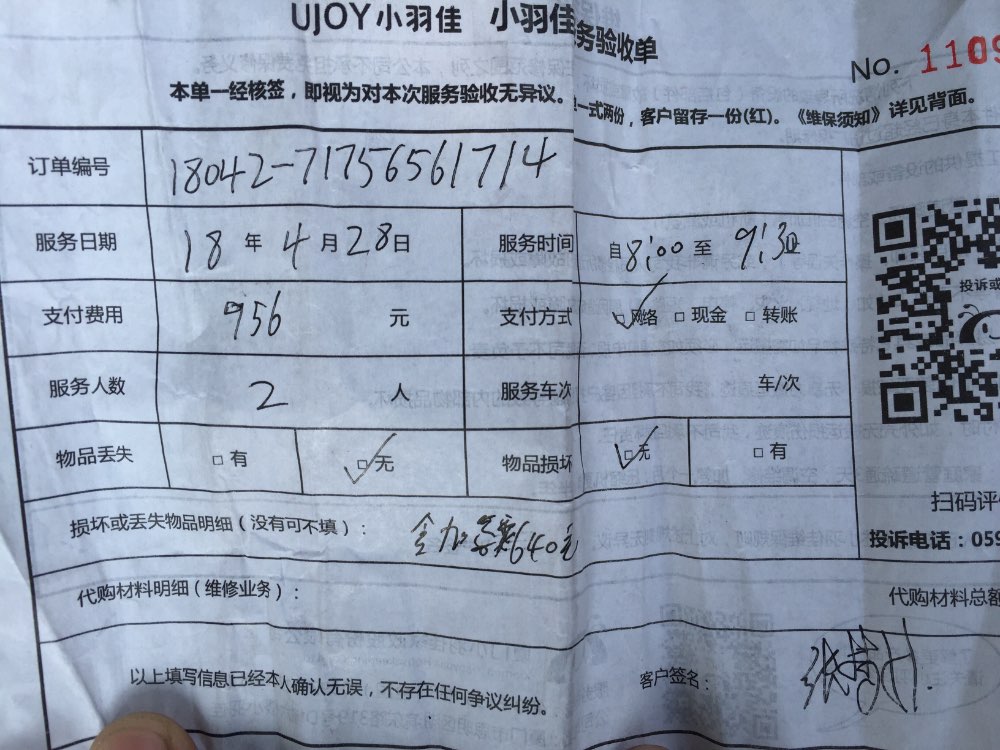 UJOY小羽佳 小羽佳
务验收单
No. 1109
本单一经核签，即视为对本次服务验收无异议。
一式两份，客户留存一份(红)。《维保须知》详见背面。
订单编号 18042-71756561714
服务日期 18 年 4 月 28 日 服务时间 自 8:00 至 9:30
支付费用 956 元 支付方式 ☑网络 □现金 □转账
投诉或
服务人数 2 人 服务车次 车/次
物品丢失 □有 ☑无 物品损坏 ☑无 □有
扫码评
损坏或丢失物品明细（没有可不填）： 加 640元
投诉电话：059
代购材料明细（维修业务）：
代购材料总额
以上填写信息已经本人确认无误，不存在任何争议纠纷。 客户签名：